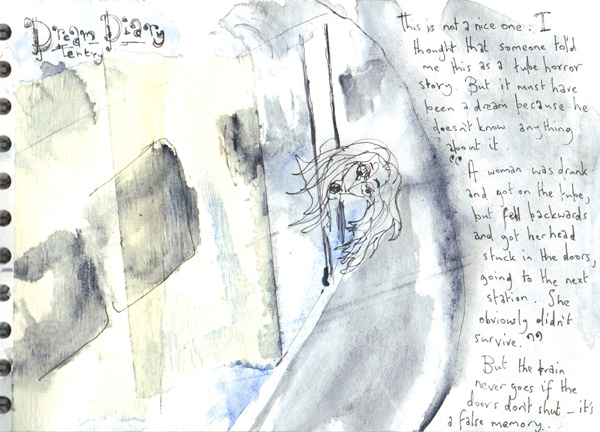 Dream Diary
entry
This is not a nice one. I
thought that someone told
me this as a tube horror
story. But it must have
been a dream because he
doesn't know anything
about it.
"A woman was drunk
and got on the tube,
but fell backwards
and got her head
stuck in the doors,
going to the next
station. She
obviously didn't
survive."
But the train
never goes if the
doors don't shut - it's
a false memory.